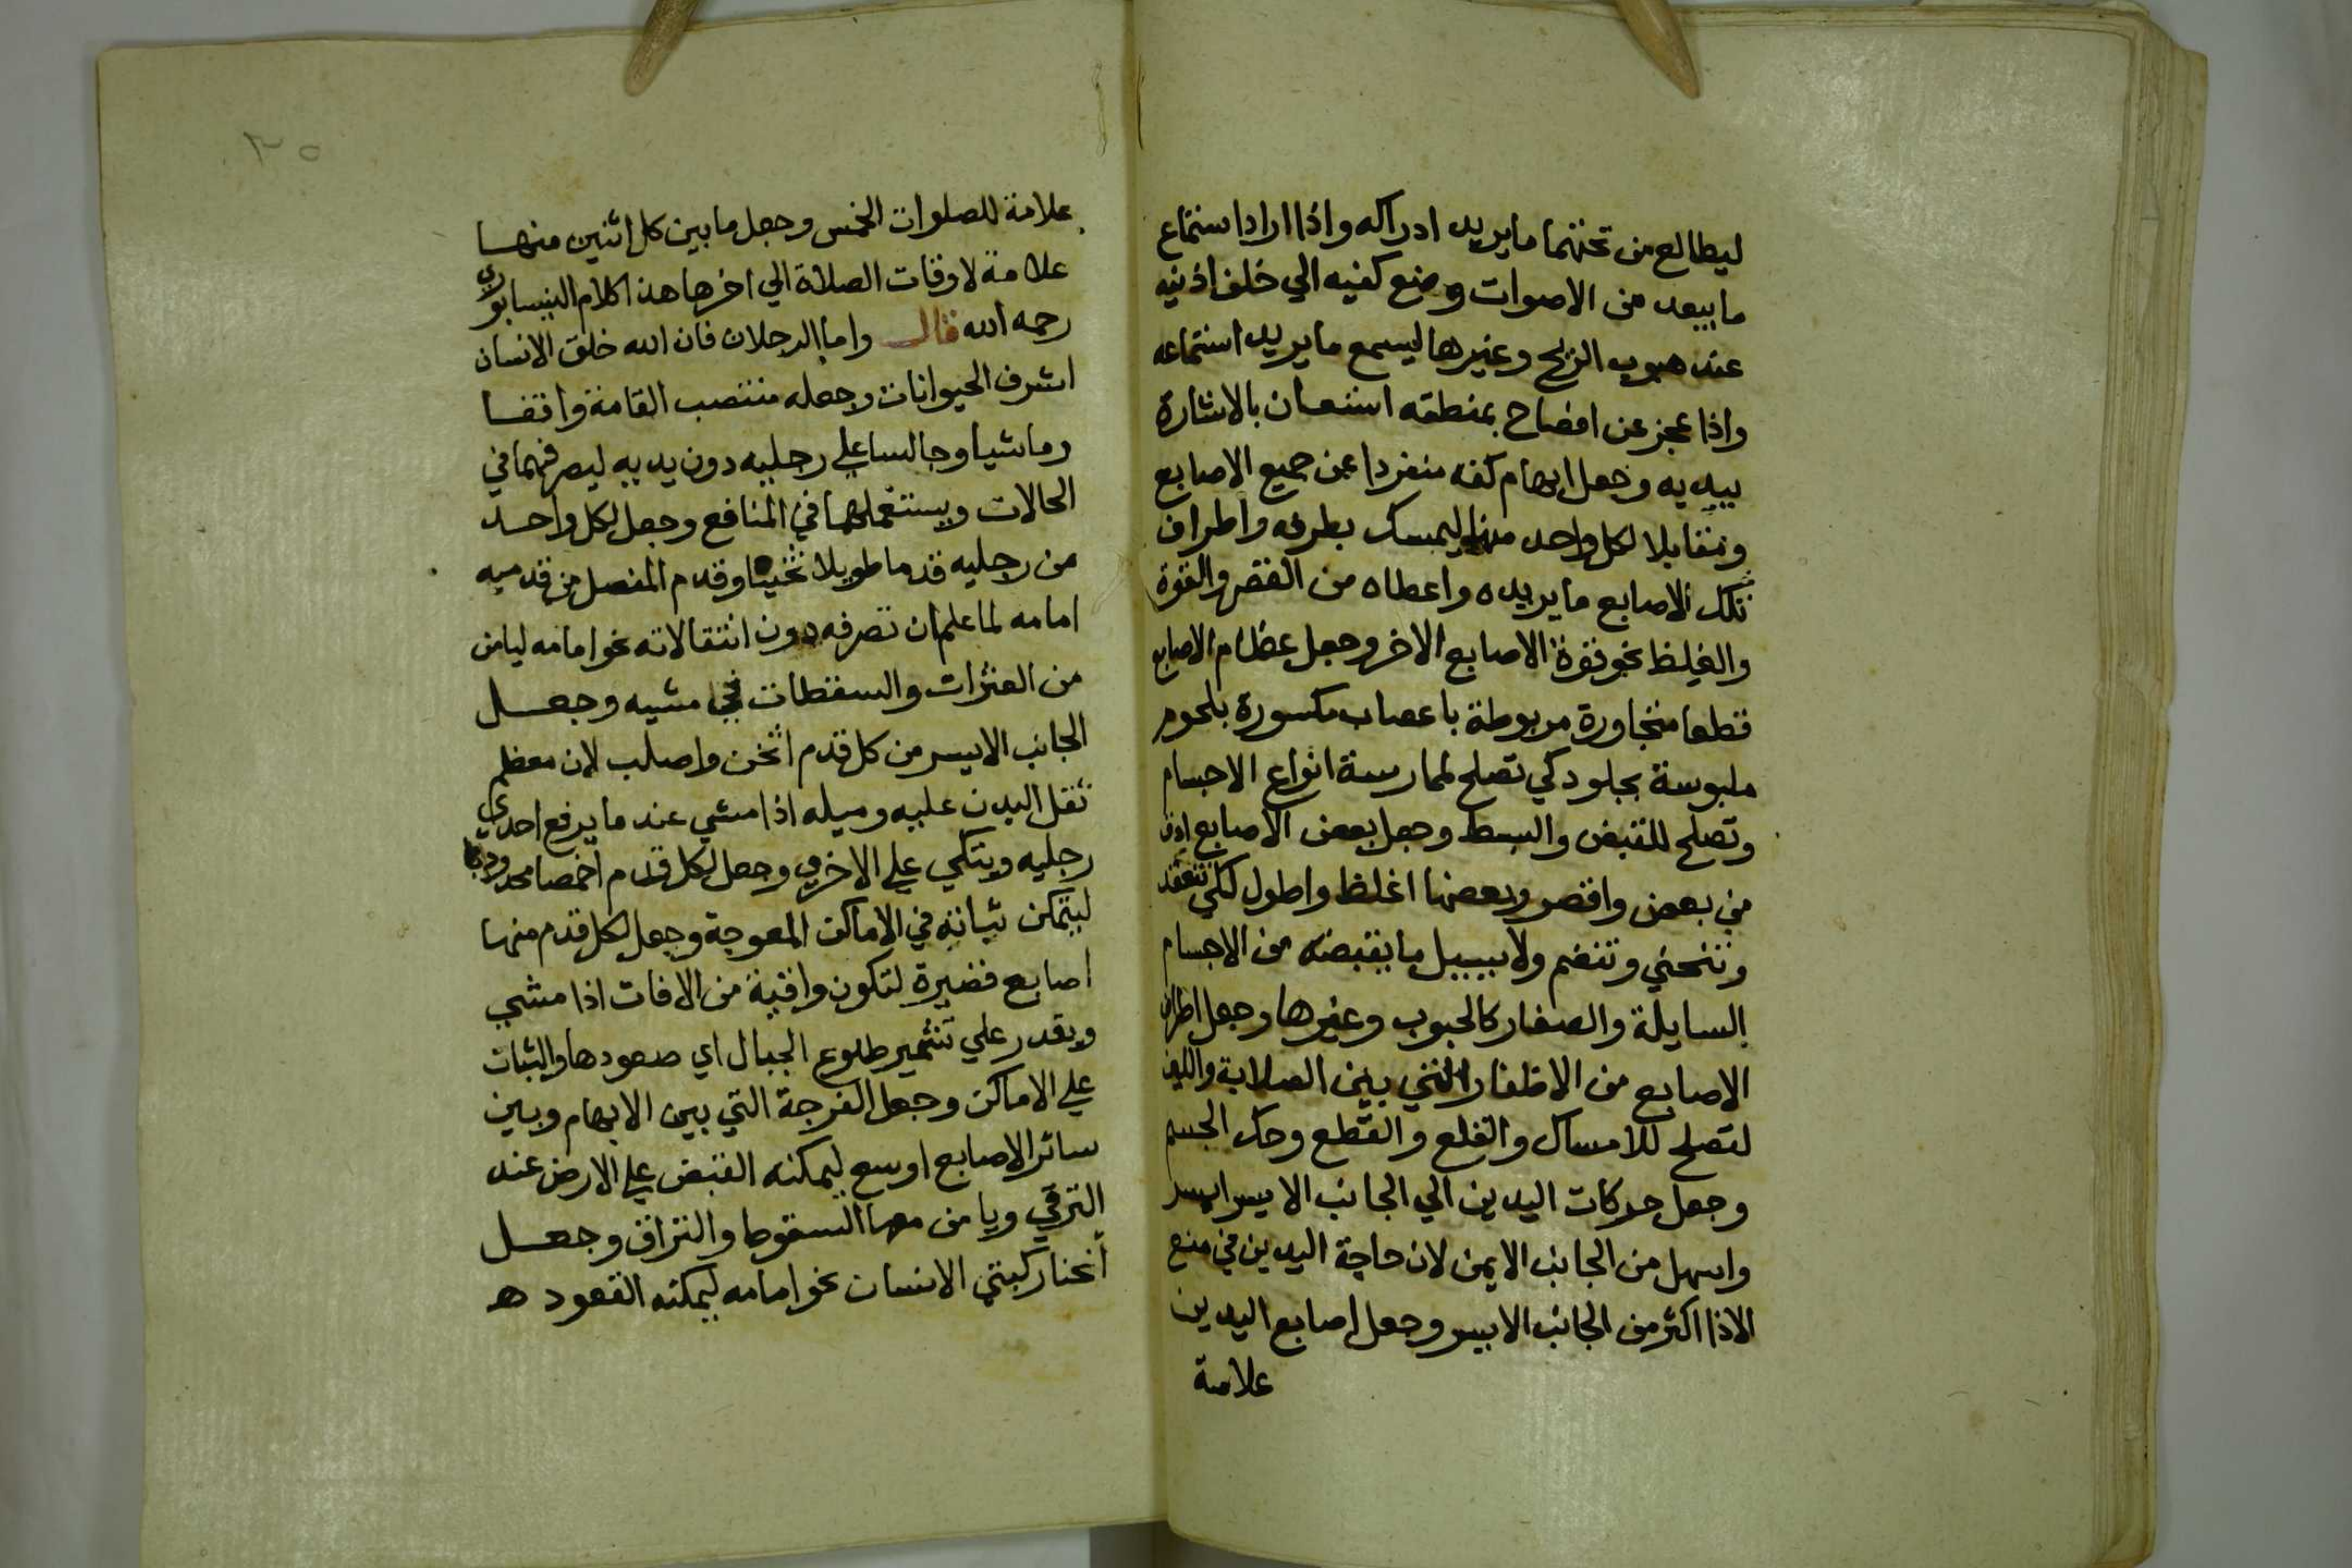 ليطالع من تحتهما ما يريد ادراكه واذا اراد استماع
ما يبعد من الاصوات وضع كفيه الي خلف اذنيه
عند هبوب الريح وغيرها ليسمع ما يريد استماعه
واذا عجز عن افصاح بمنطقه استعان بالاشارة
بيديه وجعل ابهام كفه منفردا عن جميع الاصابع
ومقابلا لكل واحد منها ليمسك بطرفه واطراف
تلك الاصابع ما يريده واعطاه من القصر والقوة
والغيلظ نحو قوة الاصابع الاخر وجعل عظام الاصابع
قطعا متجاورة مربوطة باعصاب مكسورة بلحوم
ملبوسة بجلود كي تصلح لممارسة انواع الاجسام
وتصلح للقبض والبسط وجعل بعض الاصابع ادق
من بعض واقصر وبعضها اغلظ واطول لكي تنعقد
وتنحني وتنضم ولا يسيل ما يقبضه من الاجسام
السايلة والصغار كالحبوب وغيرها وجعل اطراف
الاصابع من الاظفار التي بين الصلابة واللين
لتصلح للامساك والقلع والقطع وحك الجسم
وجعل حركات اليدين الي الجانب الايسر ايسر
واسهل من الجانب الايمن لان حاجة اليدين في منع
الاذا اكثر من الجانب الايسر وجعل اصابع اليدين
علامة
٣٥
علامة للصلوات الخمس وجعل ما بين كل اثنين منهـا
علامة لاوقات الصلاة الي اخرها هذا كلام النيسابوري
رحمه الله قال واما الرجلان فان الله خلق الانسان
اشرف الحيوانات وجعله منتصب القامة واقفـا
وماشيا وجالسا علي رجليه دون يديه ليصرفهما في
الحالات ويستعملهما في المنافع وجعل لكل واحـد
من رجليه قدما طويلا ثخينا وقدم المفصل من قدميه
امامه لما علم ان تصرفه دون انتقالاته نحو امامه ليامن
من العثرات والسقطات في مشيه وجعـل
الجانب الايسر من كل قدم اثخن واصلب لان معظم
ثقل البدن عليه وميله اذا مشي عند ما يرفع احدي
رجليه ويتكي علي الاخري وجعل لكل قدم اخمصا محدودبا
ليتمكن ثباته في الاماكن المعوجة وجعل لكل قدم منها
اصابع قصيرة لتكون واقية من الافات اذا مشي
ويقدر علي تشمير طلوع الجبال اي صعودها والثبات
علي الاماكن وجعل الفرجة التي بين الابهام وبين
سائر الاصابع اوسع ليمكنه القبض علي الارض عند
الترقي ويامن معها السقوط والنزاق وجعـل
انحنا ركبتي الانسان نحو امامه ليمكنه القعود هـ